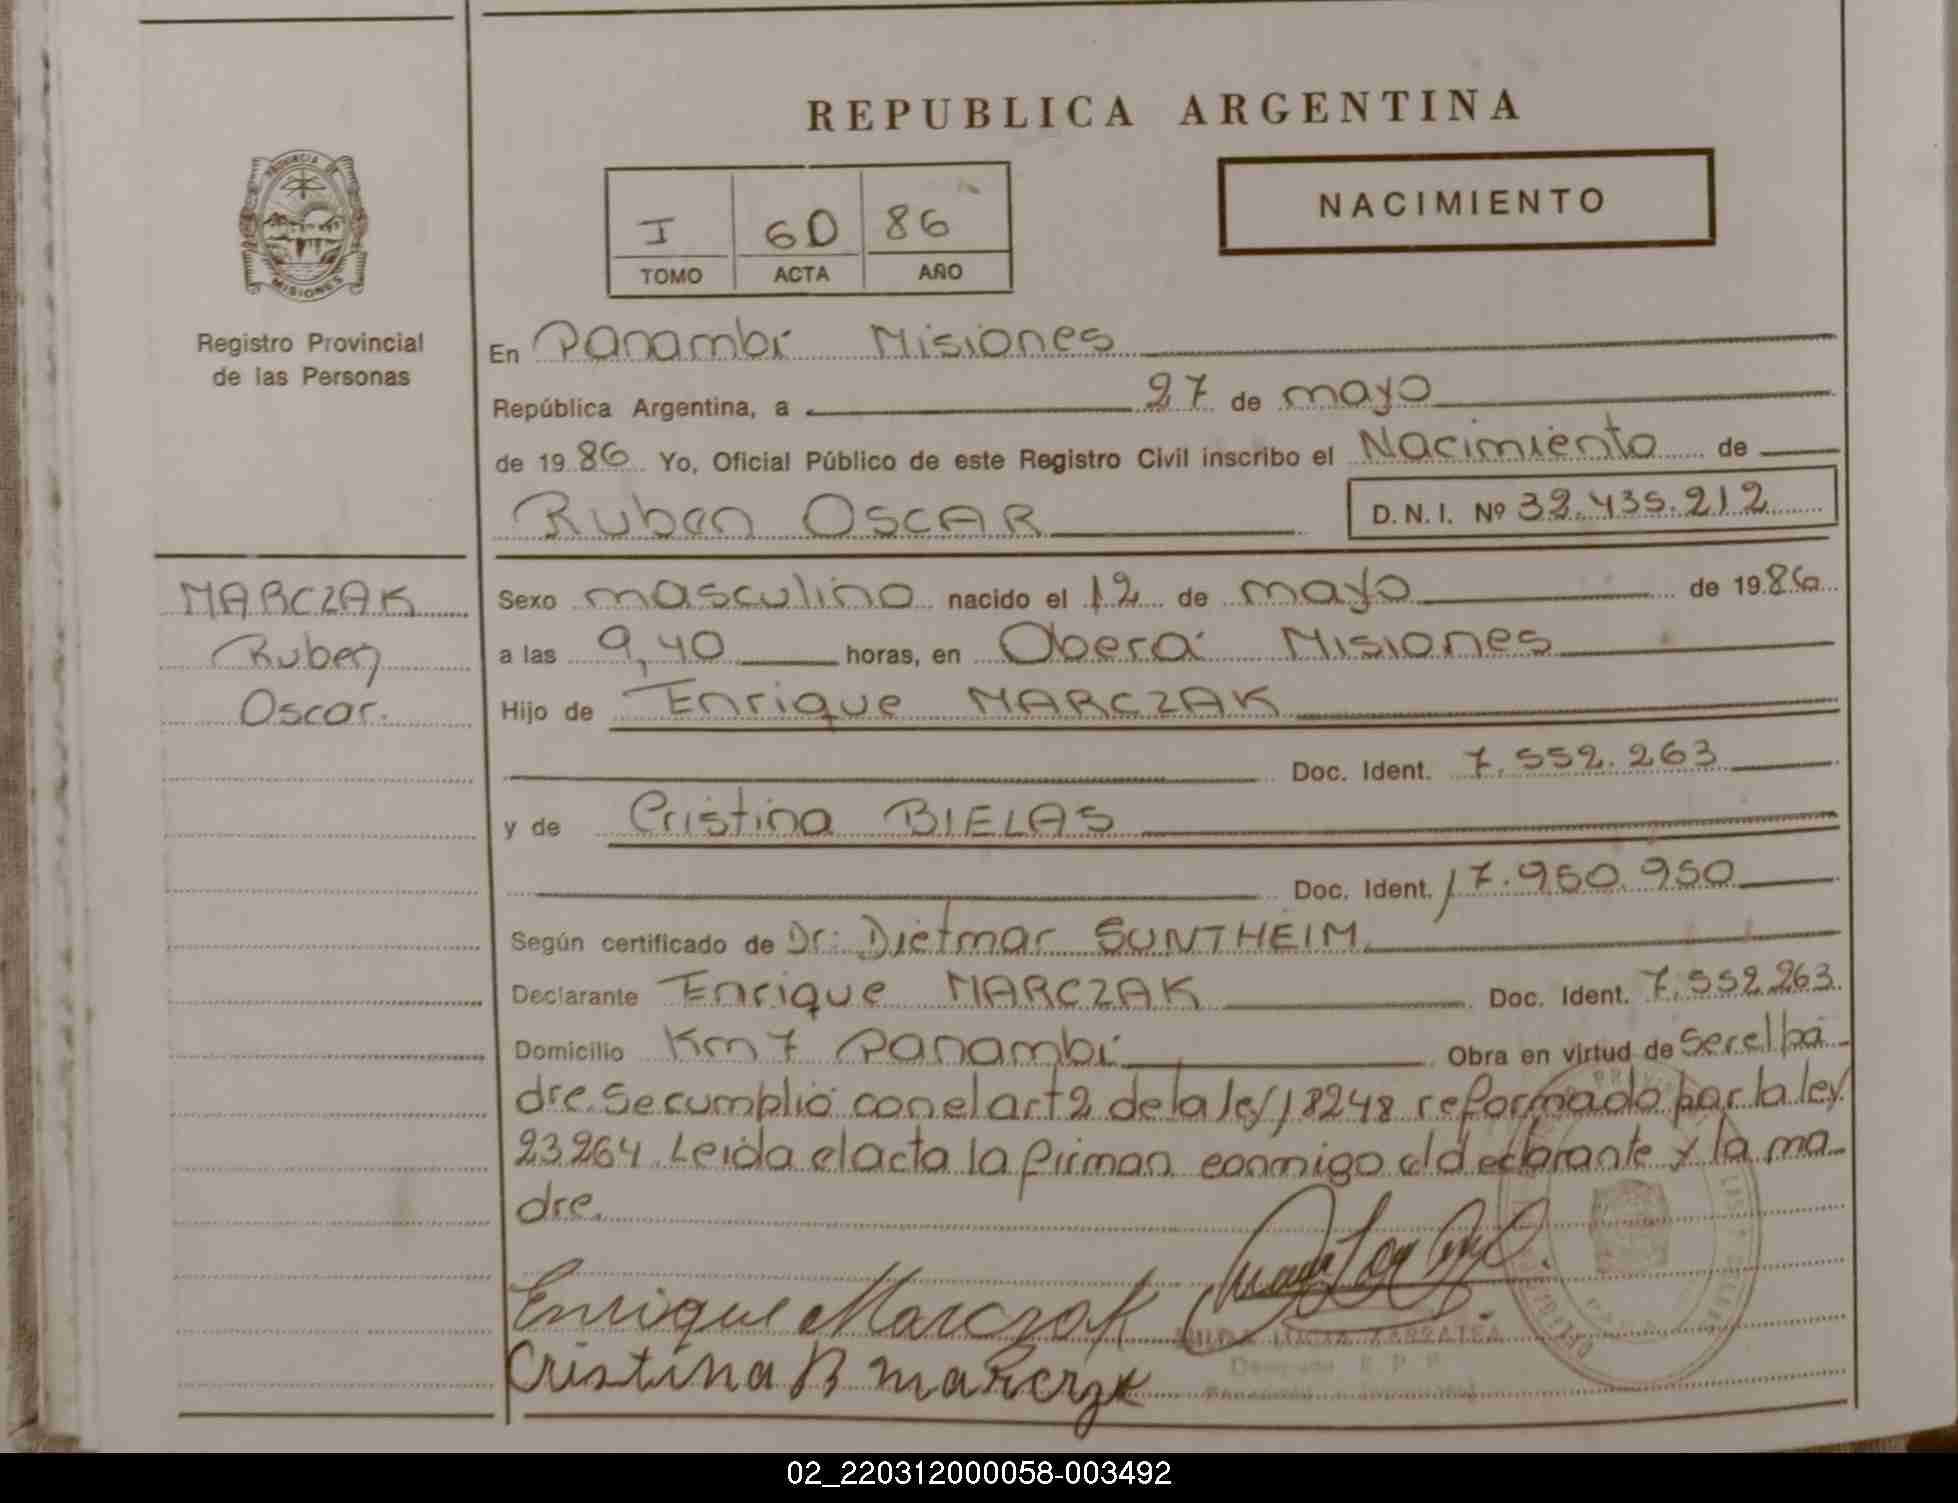 REPUBLICA ARGENTINA
PROVINCIA DE
MISIONES
NACIMIENTO
I 60 86
TOMO ACTA AÑO
Registro Provincial
de las Personas
En Panambí Misiones
República Argentina, a 27 de mayo
de 19 86 Yo, Oficial Público de este Registro Civil inscribo el Nacimiento de
Ruben OSCAR D.N.I. Nº 32.435.212
MARCZAK
Ruben
Oscar.
Sexo masculino nacido el 12 de mayo de 1986
a las 9,40 horas, en Oberá Misiones
Hijo de Enrique MARCZAK
Doc. Ident. 7.552.263
y de Cristina BIELAS
Doc. Ident. 17.950.950
Según certificado de Dr. Dietmar SUNTHEIM
Declarante Enrique MARCZAK Doc. Ident. 7.552.263
Domicilio Km 7 Panambí Obra en virtud de ser el pa
dre. Se cumplió con el art 2 de la ley 18248 reformado por la ley
23.264. Leída el acta la firman conmigo el declarante y la ma
dre.
Enrique Marczak
Cristina B Marczak
02_220312000058-003492